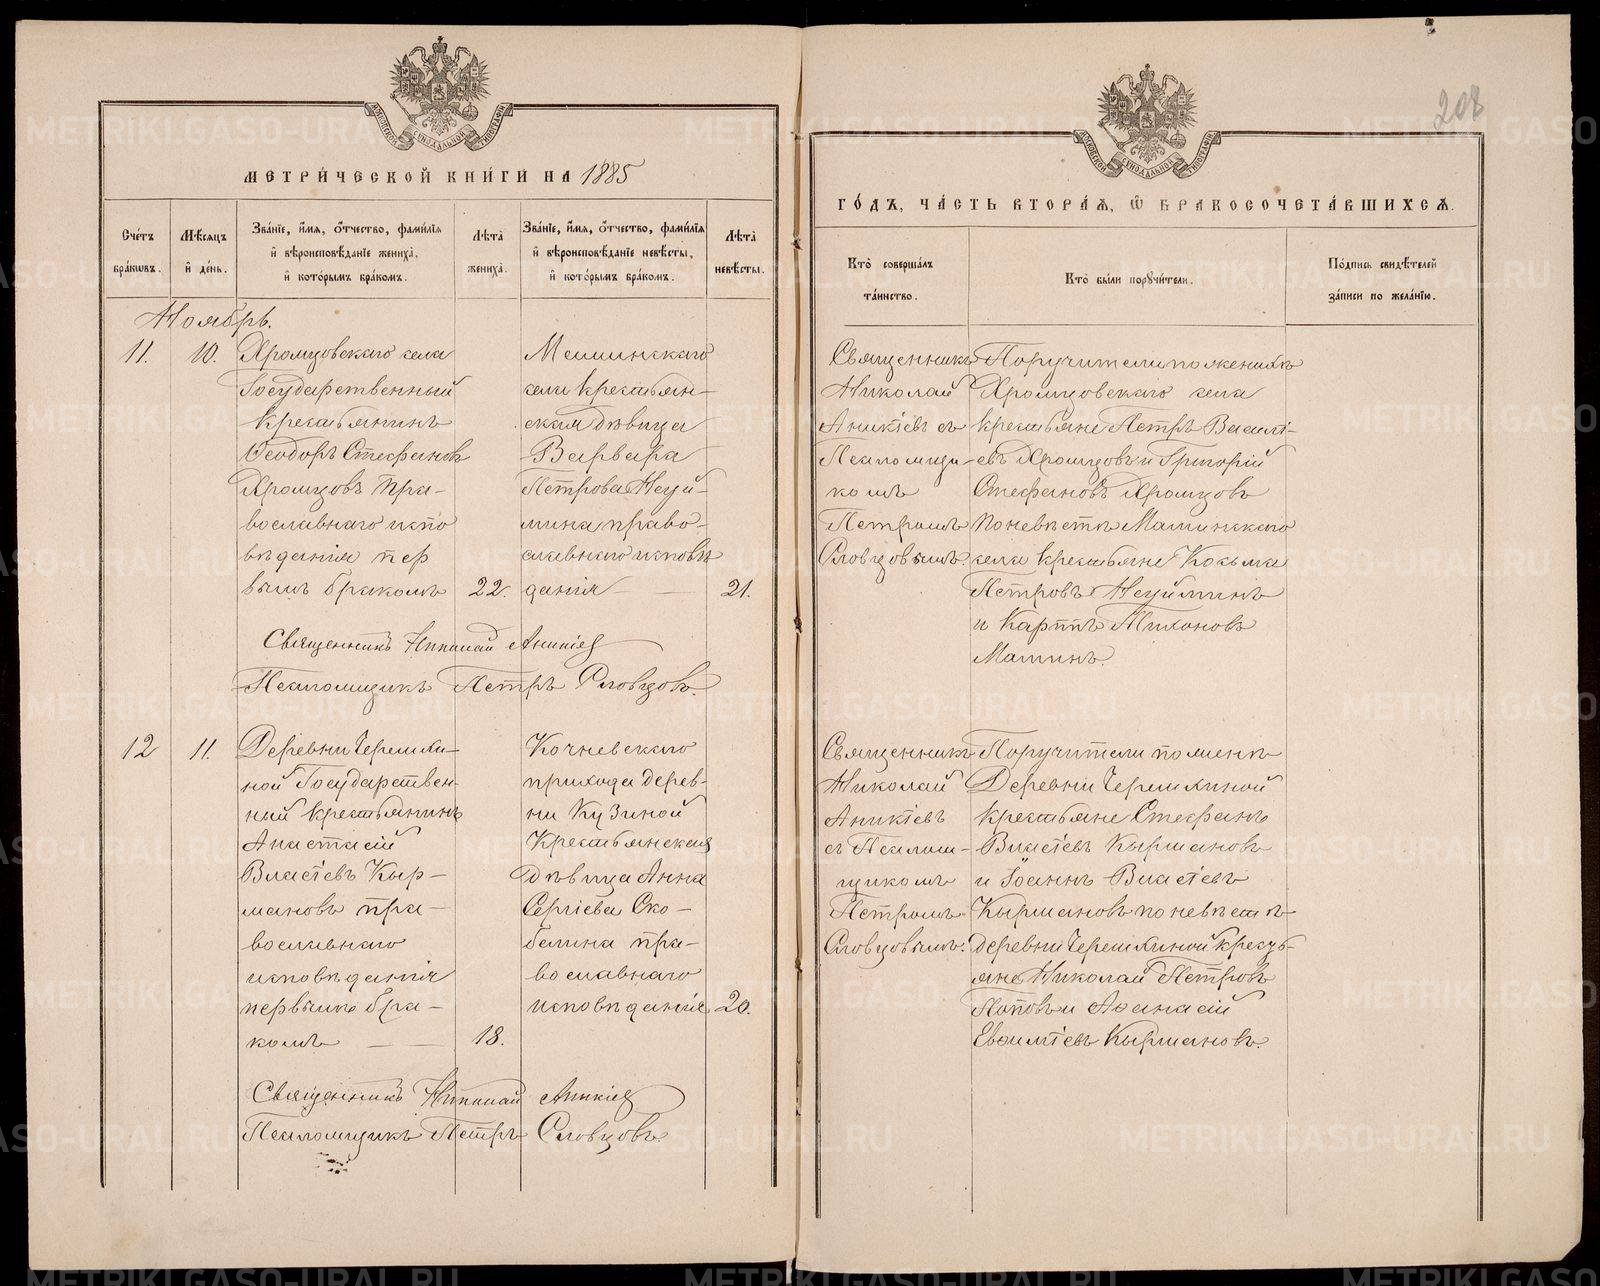 МЕТРИ́ЧЕСКОЙ КНИ́ГИ НА 1885
Сче́тъ бра́кѡвъ.
Мѣ́сѧцъ и҆ де́нь.
Зва́нїе, и҆́мѧ, ѻ҆́тчество, фами́лїѧ и҆ вѣроисповѣ́данїе жениха̀, и҆ кото́рымъ бра́комъ.
Лѣ́та жениха̀.
Зва́нїе, и҆́мѧ, ѻ҆́тчество, фами́лїѧ и҆ вѣроисповѣ́данїе невѣ́сты, и҆ кото́рымъ бра́комъ.
Лѣ́та невѣ́сты.
Ноябрь.
11.
10.
Хромцовскаго села
Государственный
крестьянинъ
Ѳеодоръ Стефановъ
Хромцовъ пра-
вославнаго испо
вѣданія пер
вымъ бракомъ
22.
села крестьян-
ская дѣвица
Варвара
Петрова Неуй-
мина право-
славнаго исповѣ
данія
21.
Священникъ Николай Аникіев
Псаломщикъ Петръ Словцовъ.
12
11.
Деревни Черемхи-
ной Государствен-
ный крестьянинъ
Анастасій
Власіевъ Кыр-
мановъ пра-
вославнаго
исповѣданія
первымъ бра-
комъ
18.
Кочневскаго
прихода дерев-
ни Кузиной
Крестьянская
дѣвица Анна
Сергіева Ско-
белина пра-
вославнаго
исповѣданія
20.
Священникъ Николай Аникіев
Псаломщикъ Петръ Словцовъ.
208
ГО́ДЪ, ЧА́СТЬ ВТОРА́Ѧ, Ѽ БРАКОСОЧЕТА́ВШИХСѦ.
Кто̀ соверша́лъ та́инство.
Кто̀ бы́ли порꙋчи́тели.
По́дпись свидѣ́телей за́писи по жела́нїю.
Священникъ
Николай
Аникіевъ съ
Псаломщи-
комъ
Петромъ
Словцовымъ.
Поручители по женихѣ
Хромцовскаго села
крестьяне Петръ Василі-
евъ Хромцовъ и Григорій
Стефановъ Хромцовъ
по невѣстѣ Маминскаго
села крестьяне Козьма
Петровъ Неуйминъ
и Карпъ Тихоновъ
Маминъ.
Священникъ
Николай
Аникіевъ
съ Псалом-
щикомъ
Петромъ
Словцовымъ.
Поручители по
Деревни Черемхиной
крестьяне Стефанъ
Власіевъ Кырмановъ
и Іоаннъ Власіевъ
Кырмановъ по невѣстѣ
деревни Черемхиной кресть-
яне Николай Петровъ
Поповъ и Аѳанасій
Евѳиміевъ Кырмановъ.
METRIKI.GASO-URAL.RU